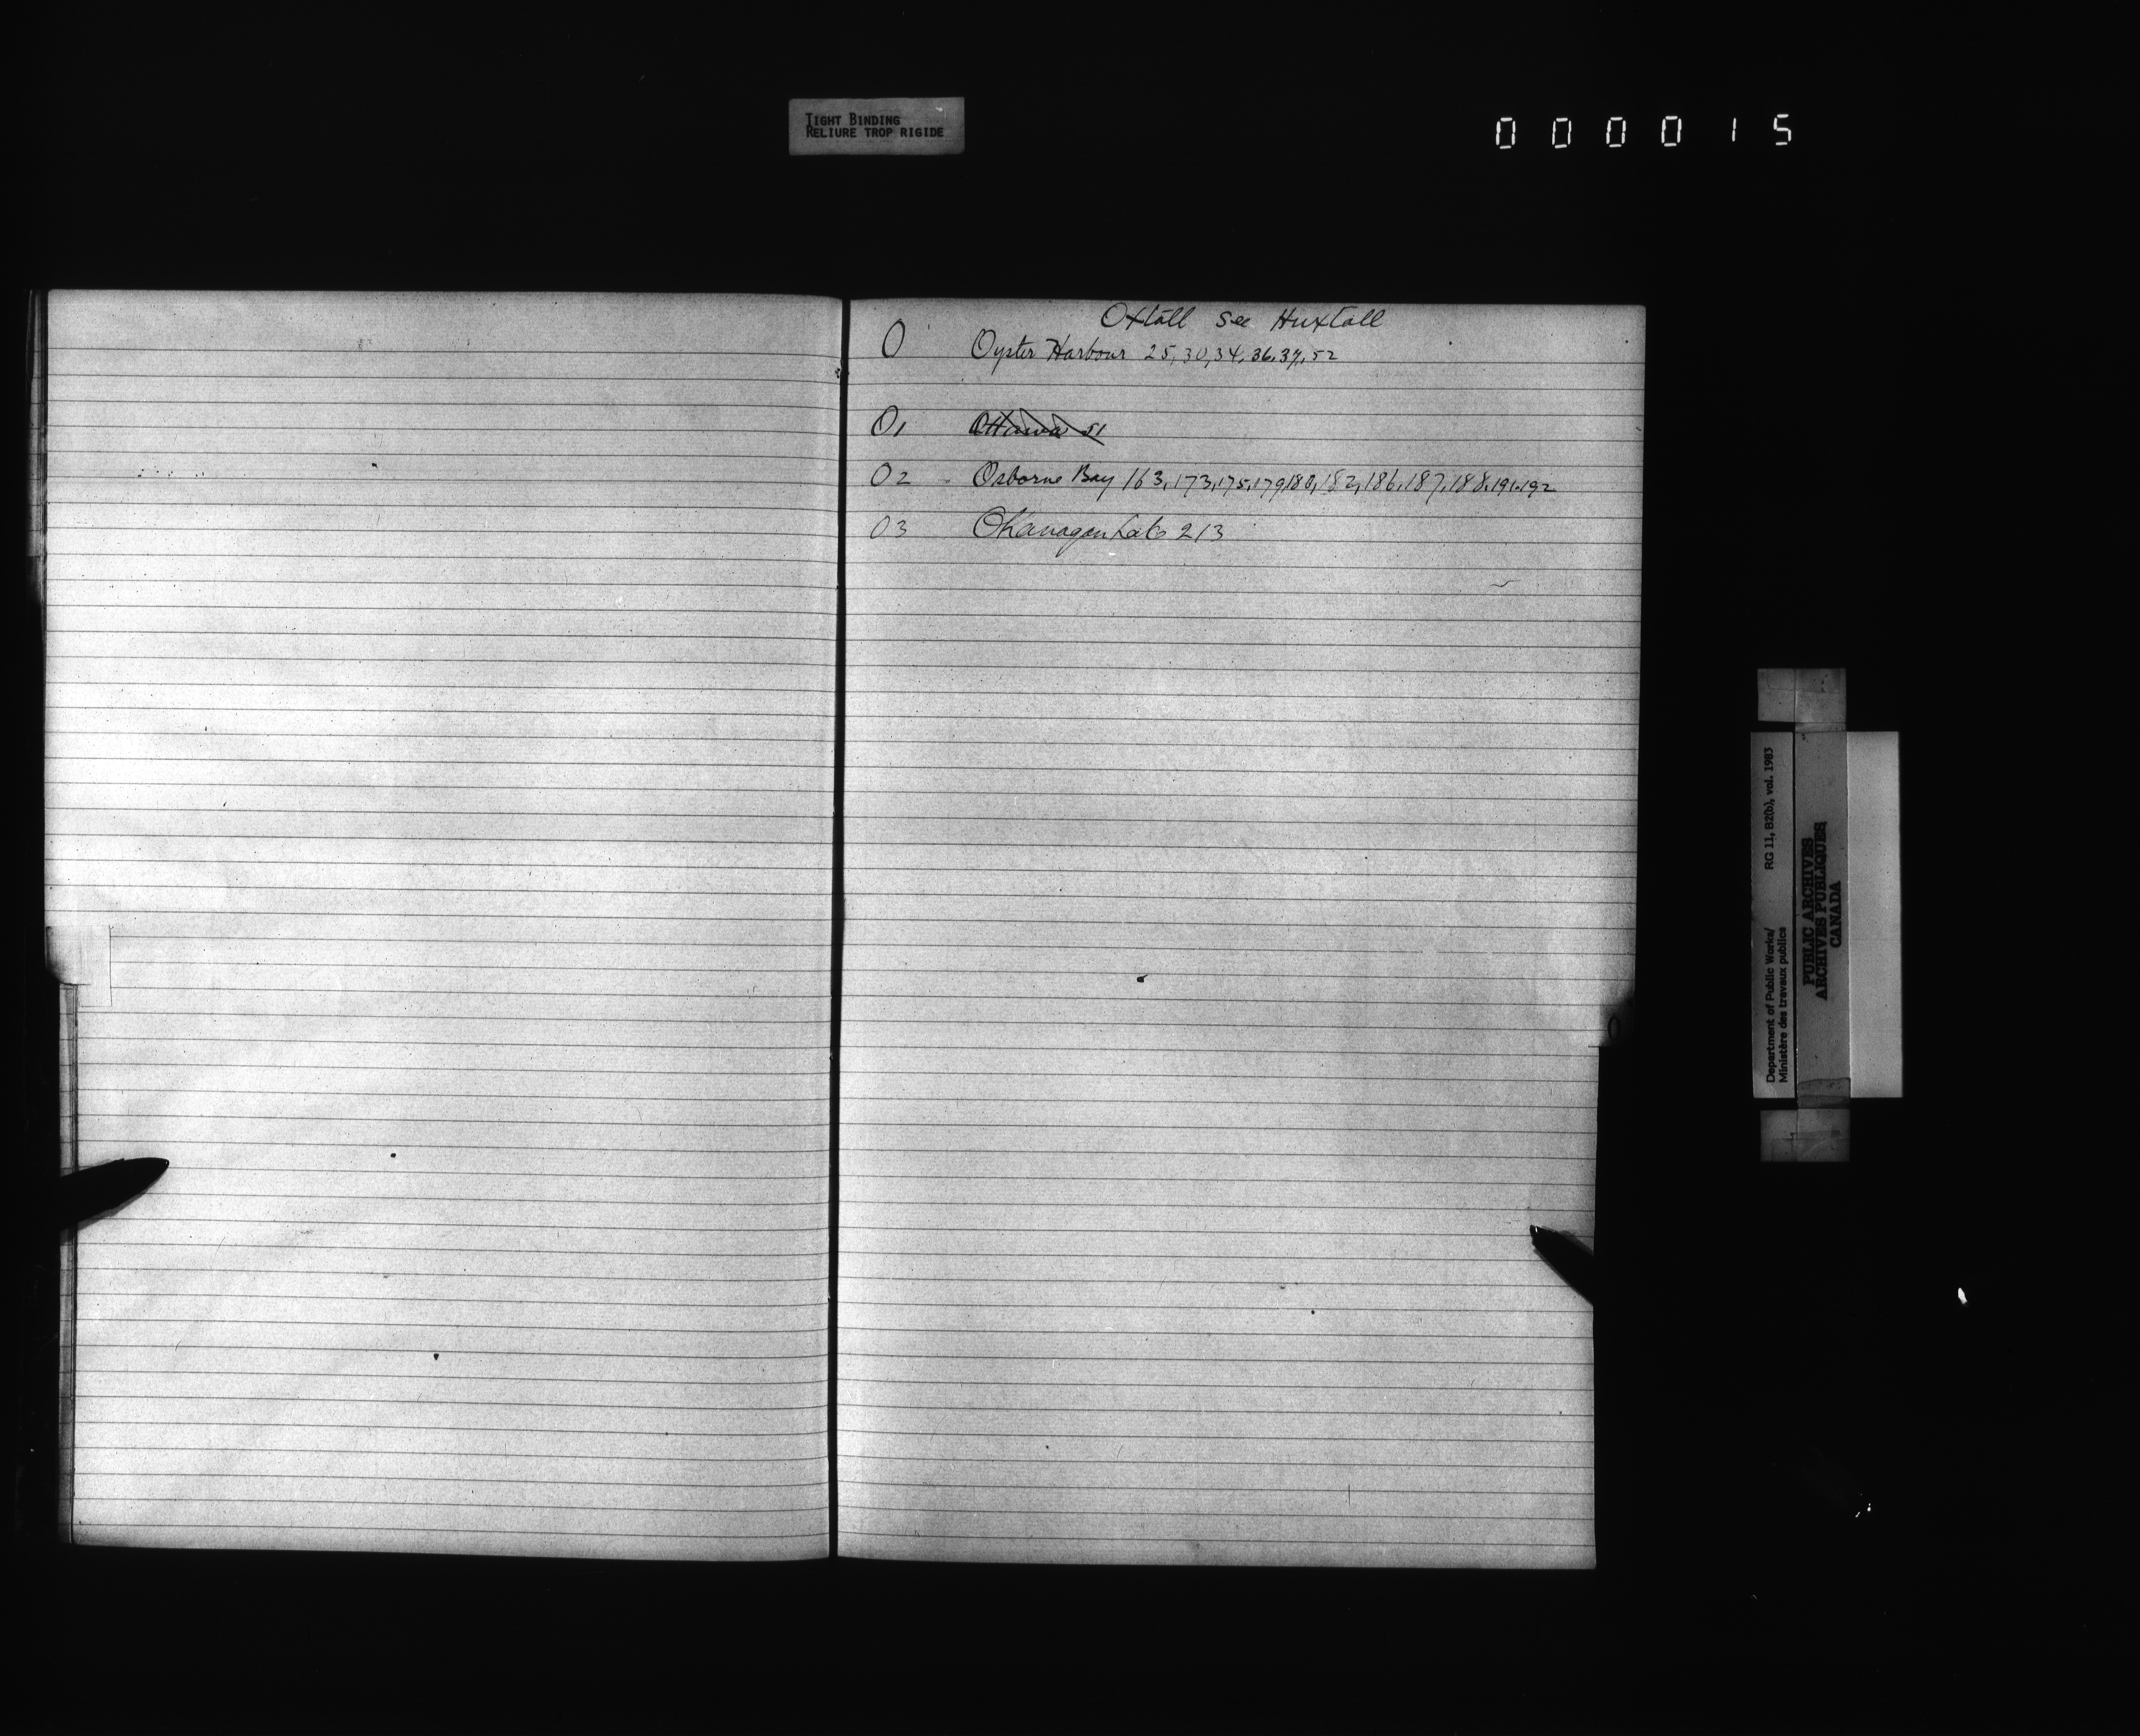 TIGHT BINDING
RELIURE TROP RIGIDE
000015
Oxtall see Huxtall
O Oyster Harbour 25,30,34,36,37,52
O1 Ottawa 51
O2 Osborne Bay 163,173,175,179,180,182,186,187,188,191,192
O3 Okanagan Lake 213
O
Department of Public Works/ RG 11, B2(b), vol. 1983
Ministère des travaux publics
PUBLIC ARCHIVES
ARCHIVES PUBLIQUES
CANADA